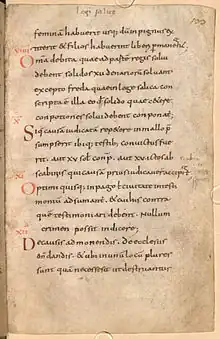 Legi salice
femina habuerit usq; dum pignus ex
titerit & filios habuerint liberi p maneant
VIIII Omnia debita quae ad partem regis solui
debent solidos xii denariorum soluant
excepto freda quae in lege salica con
scripta e illa eodem solido quae cetere
conpositiones solui debent conponat;
X Siq; causa iudicata repetere in mallo p
sumpserit ibiq; testib; conuictus fue
rit. aut xv sol conp. aut xv ictos ab
scabinis qui causa prius iudicauer accipiat
XI Optimi quisq; in pago & ciuitate in testi
monium adsumant. & cui his contra
que testimoniari debent. Nullum
crimen possit indicere;
XII De causis admonendis. De ecclesiis
emendandis. & ubi in unu locu plures
sunt quam necesse sit ut destruantur